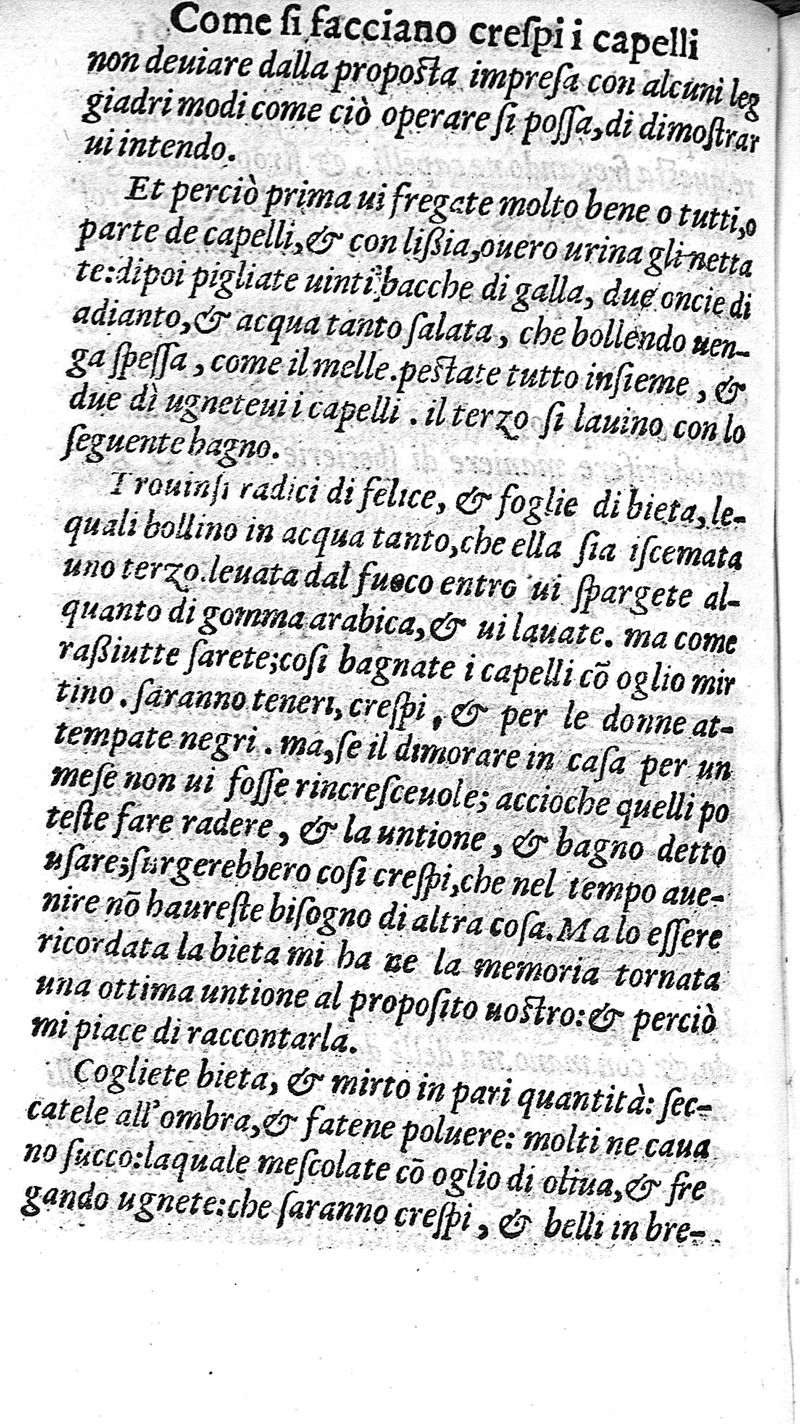 Come ſi facciano creſpi i capelli
non deuiare dalla propoſta impreſa con alcuni leg
giadri modi come ciò operare ſi poſſa, di dimoſtrar
ui intendo.
Et perciò prima ui fregate molto bene o tutti, o
parte de capelli, & con lißia, ouero urina gli netta
te: dipoi pigliate uinti bacche di galla, due oncie di
adianto, & acqua tanto ſalata, che bollendo uen-
ga ſpeſſa, come il melle. peſtate tutto inſieme, &
due dì ugneteui i capelli. il terzo ſi lauino con lo
ſeguente bagno.
Trouinſi radici di felice, & foglie di bieta, le-
quali bollino in acqua tanto, che ella ſia iſcemata
uno terzo. leuata dal fuoco entro ui ſpargete al-
quanto di gomma arabica, & ui lauate. ma come
raßiutte ſarete; coſi bagnate i capelli cō oglio mir
tino. ſaranno teneri, creſpi, & per le donne at-
tempate negri. ma, ſe il dimorare in caſa per un
meſe non ui foſſe rincreſceuole; accioche quelli po
teſte fare radere, & la untione, & bagno detto
uſare; ſurgerebbero coſi creſpi, che nel tempo aue-
nire nō haureſte biſogno di altra coſa. Ma lo eſſere
ricordata la bieta mi ha ne la memoria tornata
una ottima untione al propoſito uoſtro: & perciò
mi piace di raccontarla.
Cogliete bieta, & mirto in pari quantità: ſec-
catele all'ombra, & fatene poluere: molti ne caua
no ſucco: laquale meſcolate cō oglio di oliua, & fre
gando ugnete: che ſaranno creſpi, & belli in bre-